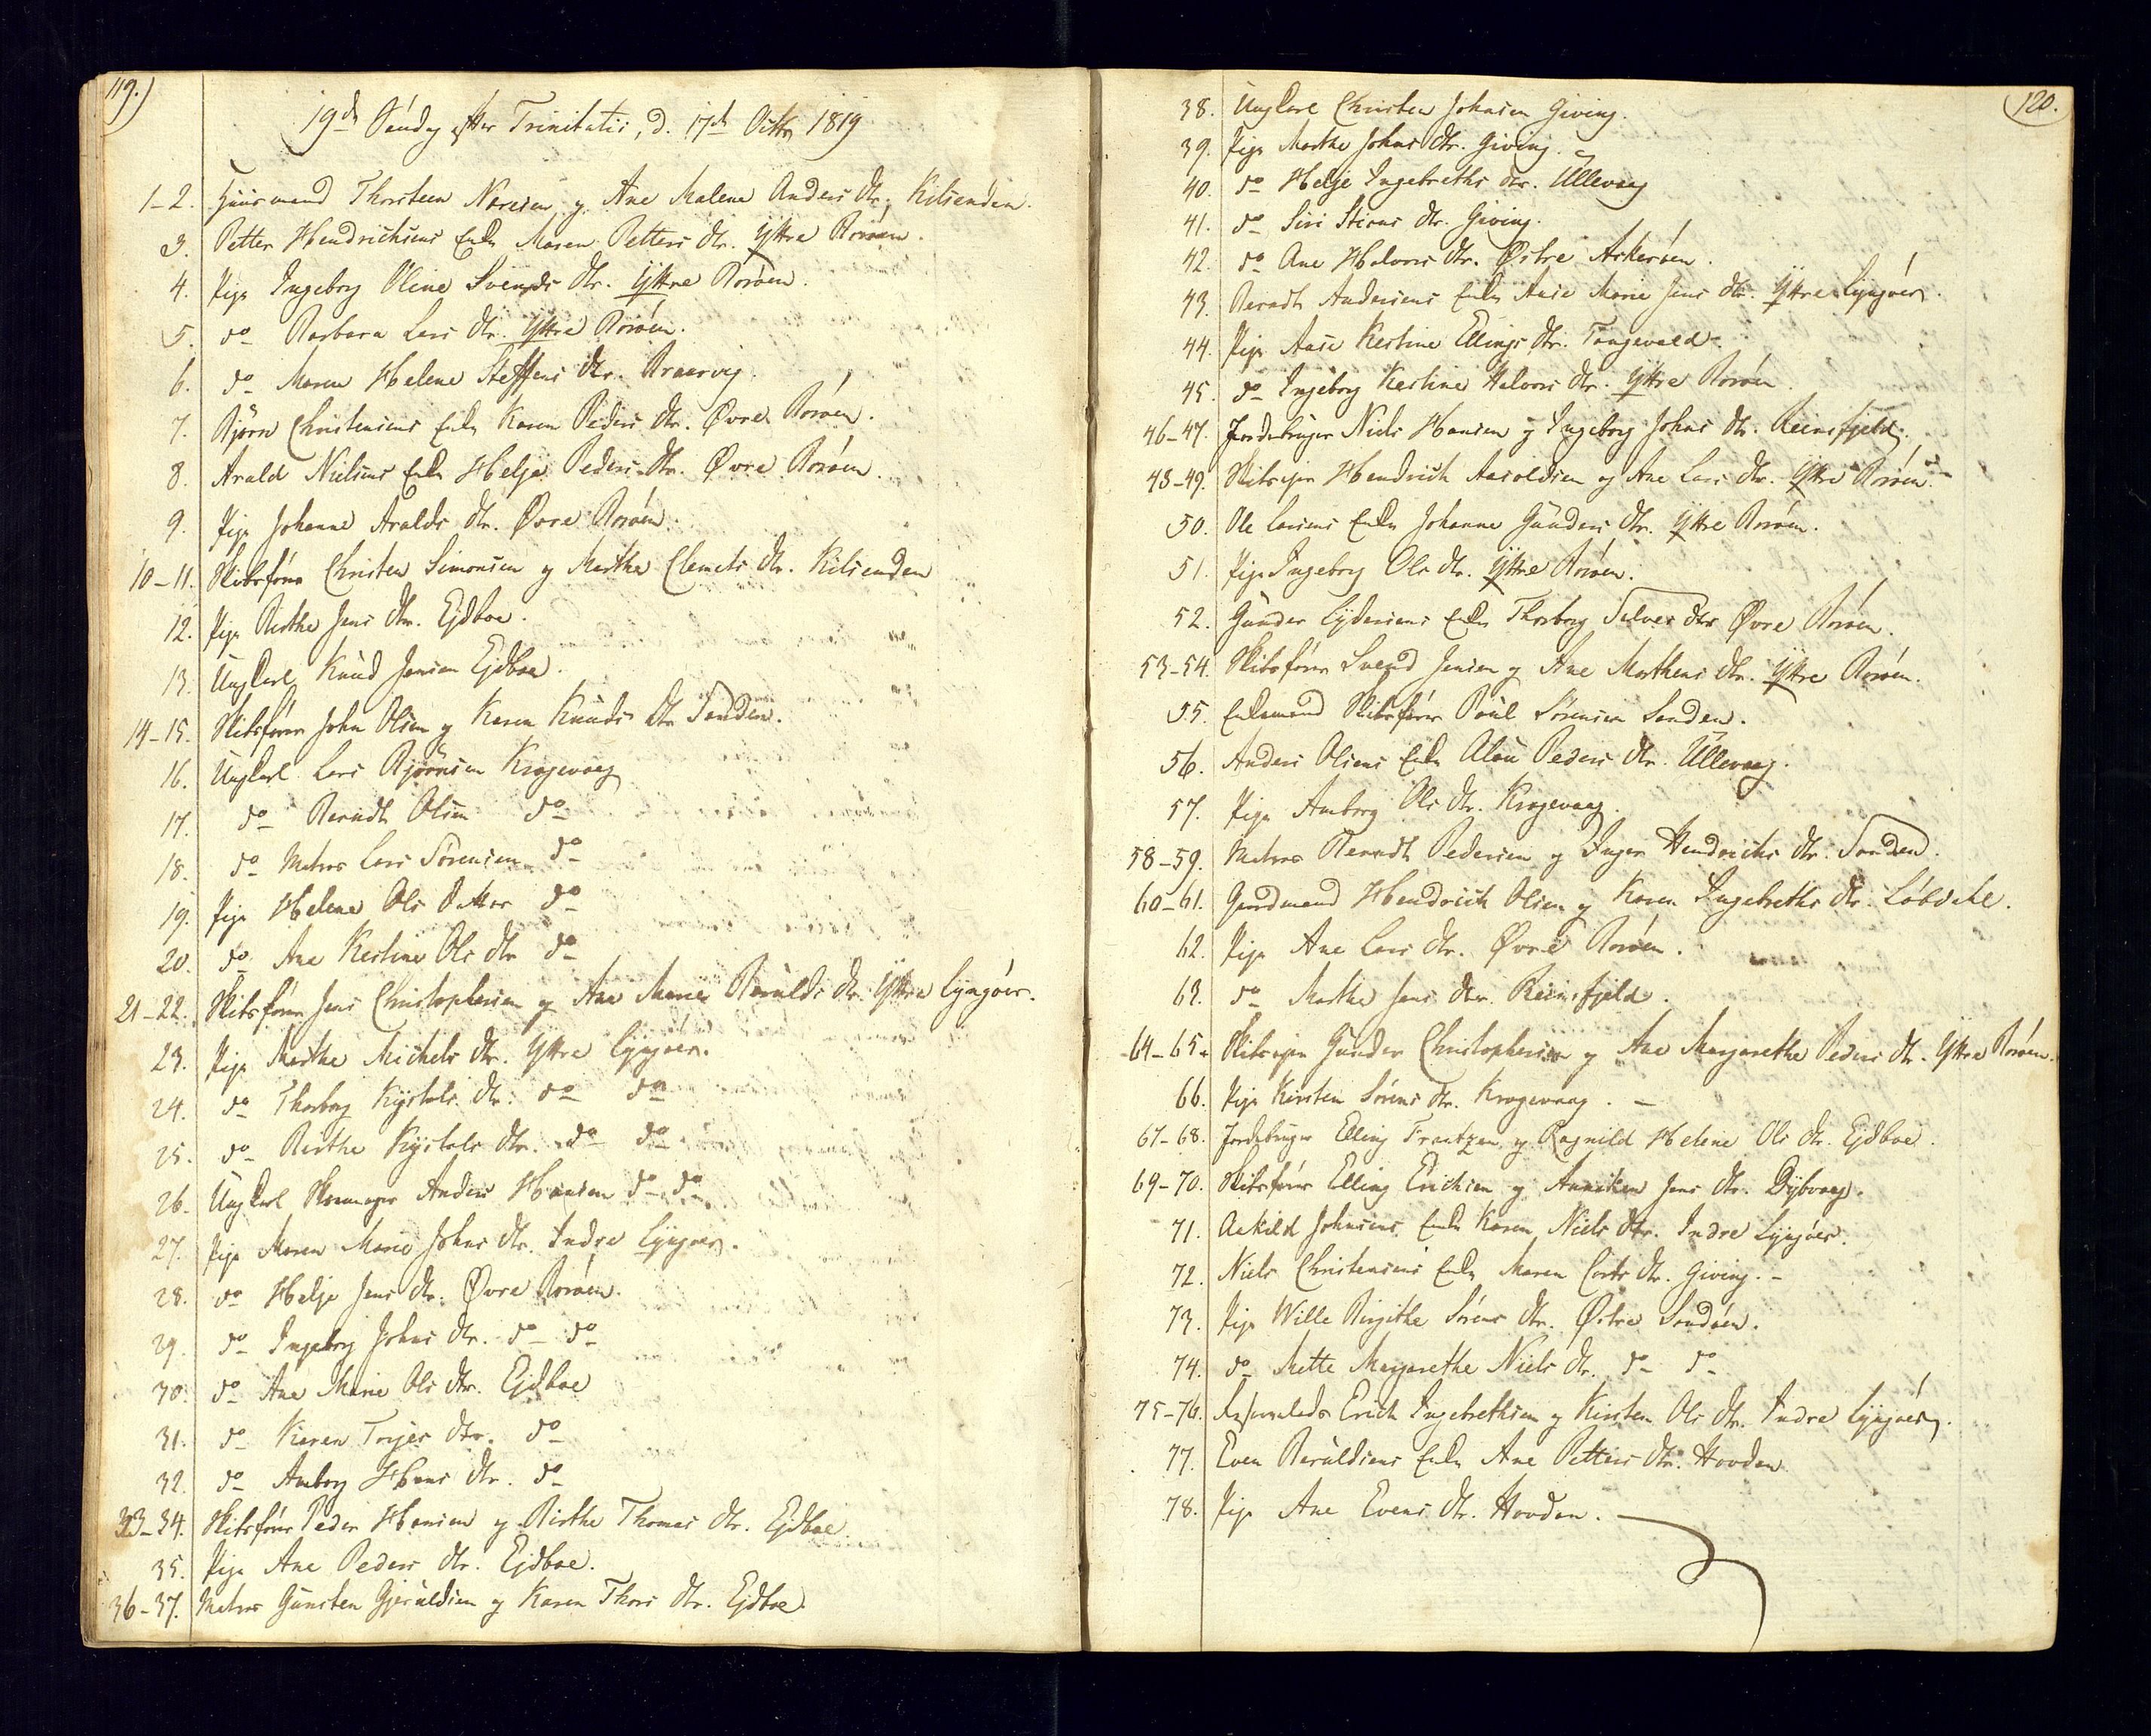 119.)
19de Søndag efter Trinitatis, d. 17de Octbr 1819
1-2. Huusmand Thorsteen Næresen og Ane Malene Anders dtr. Kilsenden.
3. Petter Hendrichsens Enke Maren Petters dtr. Yttre Borøen.
4. Pige Ingeborg Oline Svends dtr. Yttre Borøen.
5. do Barbara Lars dtr. Yttre Borøen.
6. do Maren Helene Steffens dtr. Braarvig.
7. Bjørn Christensens Enke Karen Peders dtr. Øvre Borøen.
8. Arald Nielsens Enke Helje Peders dtr. Øvre Borøen.
9. Pige Johanne Aralds dtr. Øvre Borøen.
10-11. Skibsfører Christen Simonsen og Marthe Clemets dtr. Kilsenden
12. Pige Birthe Jens dtr. Ejdboe.
13. Ungkarl Knud Jensen Ejdboe.
14-15. Skibsfører John Olsen og Karen Knuds dtr Sanden.
16. Ungkarl Lars Bjørnsen Kragevaag
17. do Berndt Olsen do
18. do Matros Lars Sørensen do
19. Pige Helene Ols Datter do
20. do Ane Kirstine Ols dtr do
21-22. Skibsfører Jens Christophersen og Ane Marie Beruld dtr. Yttre Lyngøer.
23. Pige Marthe Michels dtr. Yttre Lyngøer.
24. do Thorborg Kystols dtr. do do
25. do Birthe Kystols dtr. do do
26. Ungkarl Skomager Anders Hansen do do
27. Pige Maren Marie Johns dtr. Indre Lyngøer.
28. do Helje Jens dtr. Øvre Borøen.
29. do Ingeborg Johns dtr. do do
30. do Ane Marie Ols dtr. Ejdboe
31. do Karen Torjes dtr. do
32. do Anborg Hans dtr. do
33-34. Skibsfører Peder Hansen og Birthe Thomas dtr. Ejdboe.
35. Pige Ane Peders dtr. Ejdboe.
36-37. Matros Gunsten Gjeruldsen og Karen Thors dtr. Ejdboe.
120.
38. Ungkarl Christen Johnsen Giving.
39. Pige Marthe Johns dtr. Giving.
40. do Helje Ingebreths dtr. Ullevaag
41. do Siri Stians dtr. Giving.
42. do Ane Halvors dtr. Østre Askerøen.
43. Berndt Andersens Enke Anne Marie Jens dtr. Yttre Lyngøer.
44. Pige Aase Kirstine Ellings dtr. Tangevald.
45. do Ingeborg Kirstine Halvors dtr. Yttre Borøen.
46-47. Jordebruger Niels Hansen og Ingeborg Johns dtr. Reinsfjeld.
48-49. Skibsejer Hendrich Aaroldsen og Ane Lars dtr. Yttre Borøen.
50. Ole Larsens Enke Johanne Gunders dtr. Yttre Borøen.
51. Pige Ingeborg Ols dtr. Yttre Borøen.
52. Gunder Lydersens Enke Thorborg Salves dtr Øvre Borøen.
53-54. Skibsfører Svend Jensen og Ane Marthens dtr. Yttre Borøen.
55. Enkemand Skibsfører Poul Sørensen Sanden.
56. Anders Olsens Enke Alou Peders dtr. Ullevaag.
57. Pige Anborg Ols dtr. Kragevaag.
58-59. Matros Berndt Pedersen og Inger Hendrichs dtr. Sanden.
60-61. Gaardmand Hendrich Olsen og Karen Ingebreths dtr. Løvdahl.
62. Pige Ane Lars dtr. Øvre Borøen.
63. do Marthe Jens dtr. Reinsfjeld.
64-65. Skibsejer Gunder Christophersen og Ane Margarethe Peders dtr. Yttre Borøen.
66. Pige Kirsten Sørens dtr. Kragevaag.
67-68. Jordebruger Elling Frantzen og Ragnild Helene Ols dtr. Ejdboe.
69-70. Skibsfører Elling Erichsen og Anniken Jens dtr. Dybvaag.
71. Askild Johnsens Enke Karen Niels dtr. Indre Lyngøer.
72. Niels Christensens Enke Maren Corts dtr. Giving.
73. Pige Wille Birgithe Sørens dtr. Østre Sandøen.
74. do Mette Margarethe Niels dtr. do do
75-76. Erich Ingebrethsen og Kirsten Ols dtr. Indre Lyngøer.
77. Even Beruldsens Enke Ane Petters dtr. Hovden
78. Pige Ane Evens dtr. Hovden.